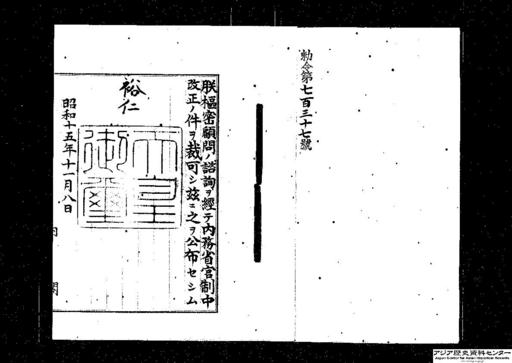 勅令第七百三十七號
朕樞密顧問ノ諮詢ヲ經テ內務省官制中
改正ノ件ヲ裁可シ茲ニ之ヲ公布セシム
裕仁
天皇
御璽
昭和十五年十一月八日
內閣
アジア歴史資料センター
Japan Center for Asian Historical Records